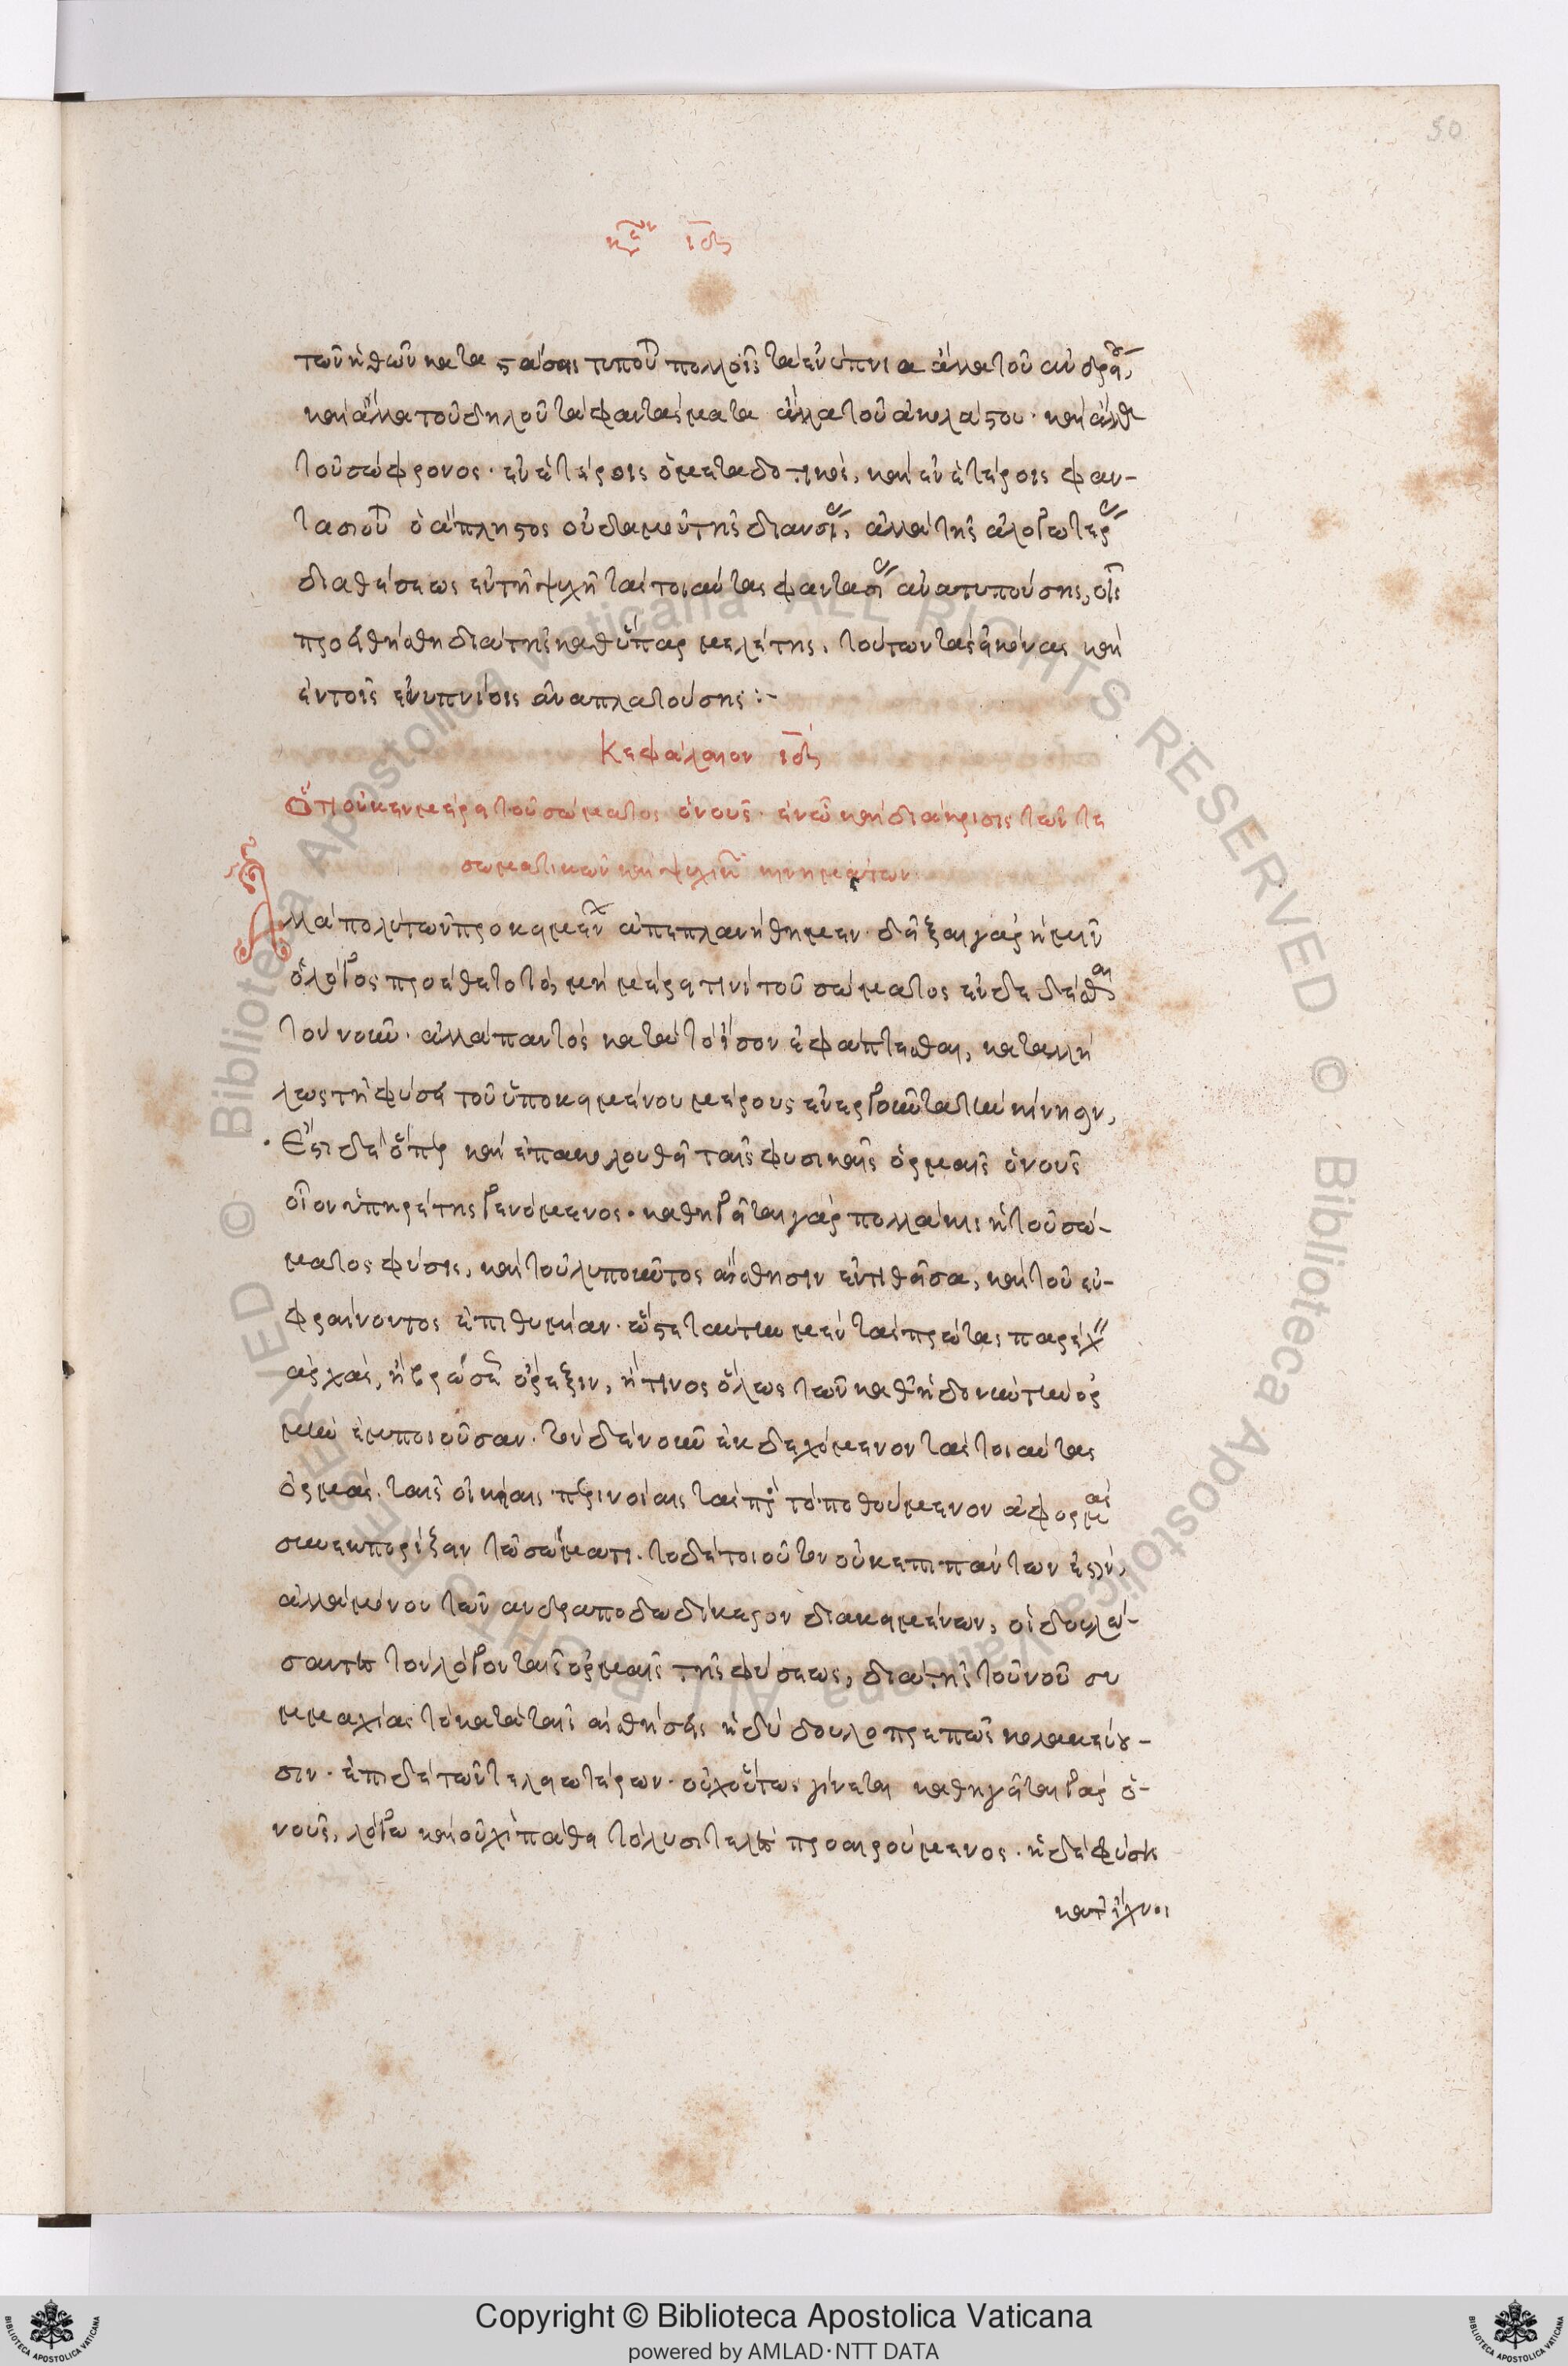 50
κεφ. ιδʹ
τῶν ἠθῶν καταστάσει τυποῦται πολλοῖς τὰ ἐνύπνια ἄλλα τοῦ ἀνδρείου,
καὶ ἄλλα τοῦ δειλοῦ τὰ φαντάσματα ἄλλα τοῦ ἀκολάστου· καὶ ἄλλα
τοῦ σώφρονος· ἐν ἑτέροις ὁ μεταδοτικός, καὶ ἐν ἑτέροις φαν-
τασιοῦται ὁ ἄπληστος οὐδαμοῦ τῆς διανοίας, ἀλλὰ τῆς ἀλογωτέρας
διαθέσεως ἐν τῇ ψυχῇ τὰς τοιαύτας φαντασίας ἀνατυπούσης, οἷς
προσειθίσθη διὰ τῆς καθ' ὕπαρ μελέτης, τούτων τὰς εἰκόνας καὶ
ἐν τοῖς ἐνυπνίοις ἀναπλαττούσης :-
Κεφάλαιον ιδʹ
Ὅτι οὐκ ἐν μέρει τοῦ σώματος ὁ νοῦς· ἐν ᾧ καὶ διάκρισις τῶν τε
σωματικῶν καὶ ψυχικῶν κινημάτων
Ἀλλὰ πολὺ τῶν προκειμένων ἀπεπλανήθημεν· δεῖξαι γὰρ ἡμῖν
ὁ λόγος προέθετο τὸ, μὴ μέρει τινὶ τοῦ σώματος ἐνδεδέσθαι
τὸν νοῦν· ἀλλὰ παντὸς κατὰ τὸ ἴσον ἐφάπτεσθαι, καταλλή
λως τῇ φύσει τοῦ ὑποκειμένου μέρους ἐνεργοῦντα τὴν κίνησιν,
Ἔστι δὲ ὅπῃ καὶ ἐπακολουθεῖ ταῖς φυσικαῖς ὁρμαῖς ὁ νοῦς
οἷον ὑπηρέτης γενόμενος· καθηγεῖται γὰρ πολλάκις ἡ τοῦ σώ-
ματος φύσις, καὶ τοῦ λυποῦντος αἴσθησιν ἐντιθεῖσα, καὶ τοῦ εὐ-
φραίνοντος ἐπιθυμίαν· ὥστε ταύτην μὲν τὰς πρώτας παρέχειν
ἀρχὰς, ἢ βρώσεως ὄρεξιν, ἤ τινος ὅλως τῶν καθ' ἡδονὴν τὴν ὁρ
μὴν ἐμποιοῦσαν· τὸν δὲ νοῦν ἐκδεχόμενον τὰς τοιαύτας
ὁρμὰς. ταῖς οἰκείαις περινοίαις τὰς πρὸς τὸ ποθούμενον ἀφορμὰς
συνεκπορίζειν τῷ σώματι. τὸ δὲ τοιοῦτον οὐκ ἐπὶ πάντων ἐστὶν,
ἀλλὰ μόνον τῶν ἀνδραποδωδέστερον διακειμένων, οἳ δουλώ-
σαντες τὸν λόγον ταῖς ὁρμαῖς τῆς φύσεως, διὰ τῆς τοῦ νοῦ συ
μμαχίας τὸ κατὰ ταῖς αἰσθήσεις ἡδὺ δουλοπρεπῶς κολακεύου-
σιν· ἐπὶ δὲ τῶν τελειωτέρων· οὐχ οὕτως γίνεται καθηγεῖται γὰρ ὁ-
νοῦς, λόγῳ καὶ οὐχὶ πάθει τὸ λυσιτελὲς προαιρούμενος· ἡ δὲ φύσις
κατ' ἴχνος

Copyright © Biblioteca Apostolica Vaticana
powered by AMLAD·NTT DATA